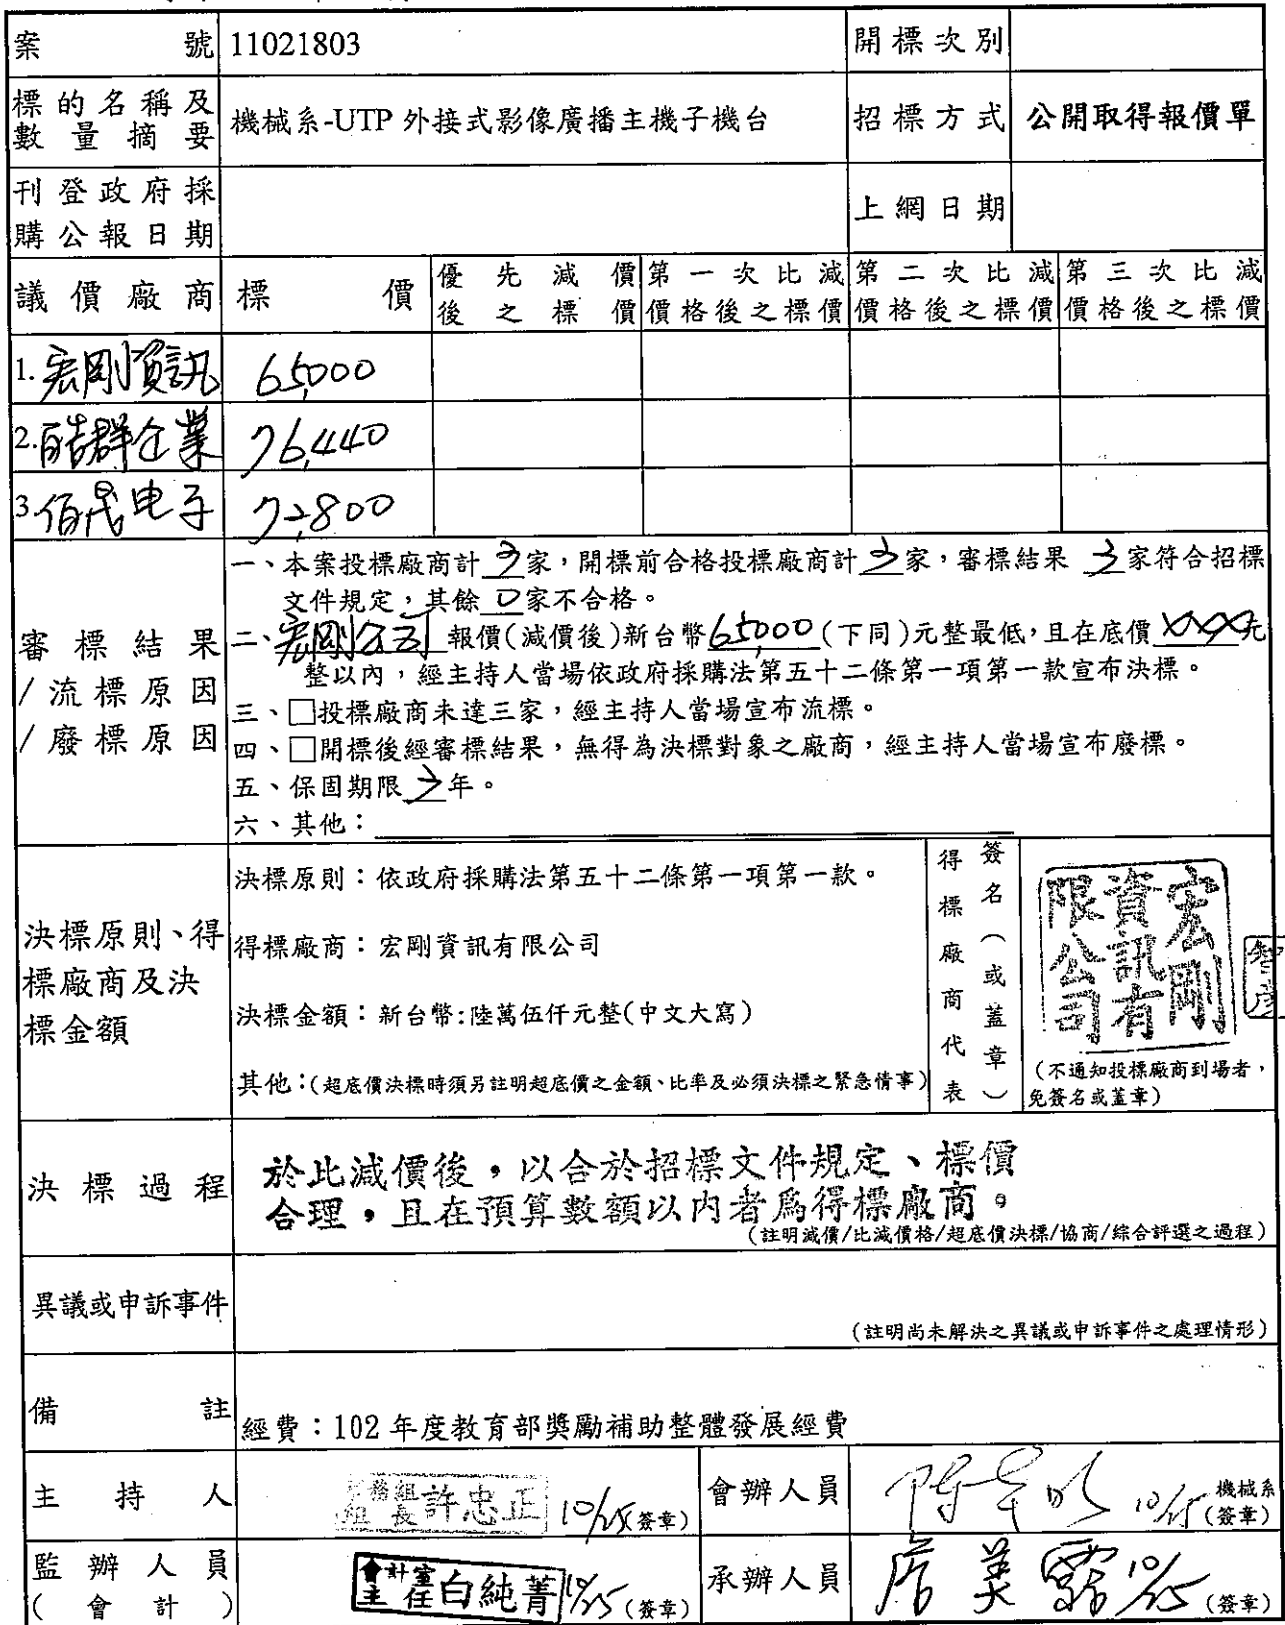 案號 11021803 開標次別
標的名稱及數量摘要 機械系-UTP 外接式影像廣播主機子機台 招標方式 公開取得報價單
刊登政府採購公報日期 上網日期
議價廠商 標價 優先減價後之標價 第一次比減價格後之標價 第二次比減價格後之標價 第三次比減價格後之標價
1.宏剛資訊 65,000
2.皓群企業 76,440
3.佰茂电子 72,800
審標結果/流標原因/廢標原因
一、本案投標廠商計 3 家，開標前合格投標廠商計 3 家，審標結果 3 家符合招標
文件規定，其餘 0 家不合格。
二、宏剛公司 報價(減價後)新台幣 65,000 (下同)元整最低，且在底價 XXX 元
整以內，經主持人當場依政府採購法第五十二條第一項第一款宣布決標。
三、□投標廠商未達三家，經主持人當場宣布流標。
四、□開標後經審標結果，無得為決標對象之廠商，經主持人當場宣布廢標。
五、保固期限 3 年。
六、其他：
決標原則、得標廠商及決標金額
決標原則：依政府採購法第五十二條第一項第一款。
得標廠商：宏剛資訊有限公司
決標金額：新台幣:陸萬伍仟元整(中文大寫)
其他：(超底價決標時須另註明超底價之金額、比率及必須決標之緊急情事)
得標廠商代表
簽名（或蓋章）
宏剛資訊有限公司
(不通知投標廠商到場者，
免簽名或蓋章)
決標過程
於此減價後，以合於招標文件規定、標價
合理，且在預算數額以內者為得標廠商。
(註明減價/比減價格/超底價決標/協商/綜合評選之過程)
異議或申訴事件
(註明尚未解決之異議或申訴事件之處理情形)
備註 經費：102 年度教育部獎勵補助整體發展經費
主持人 組長 許忠正 10/25 (簽章) 會辦人員 10/25 機械系 (簽章)
監辦人員(會計) 會計室主任 白純菁 10/25 (簽章) 承辦人員 10/25 (簽章)